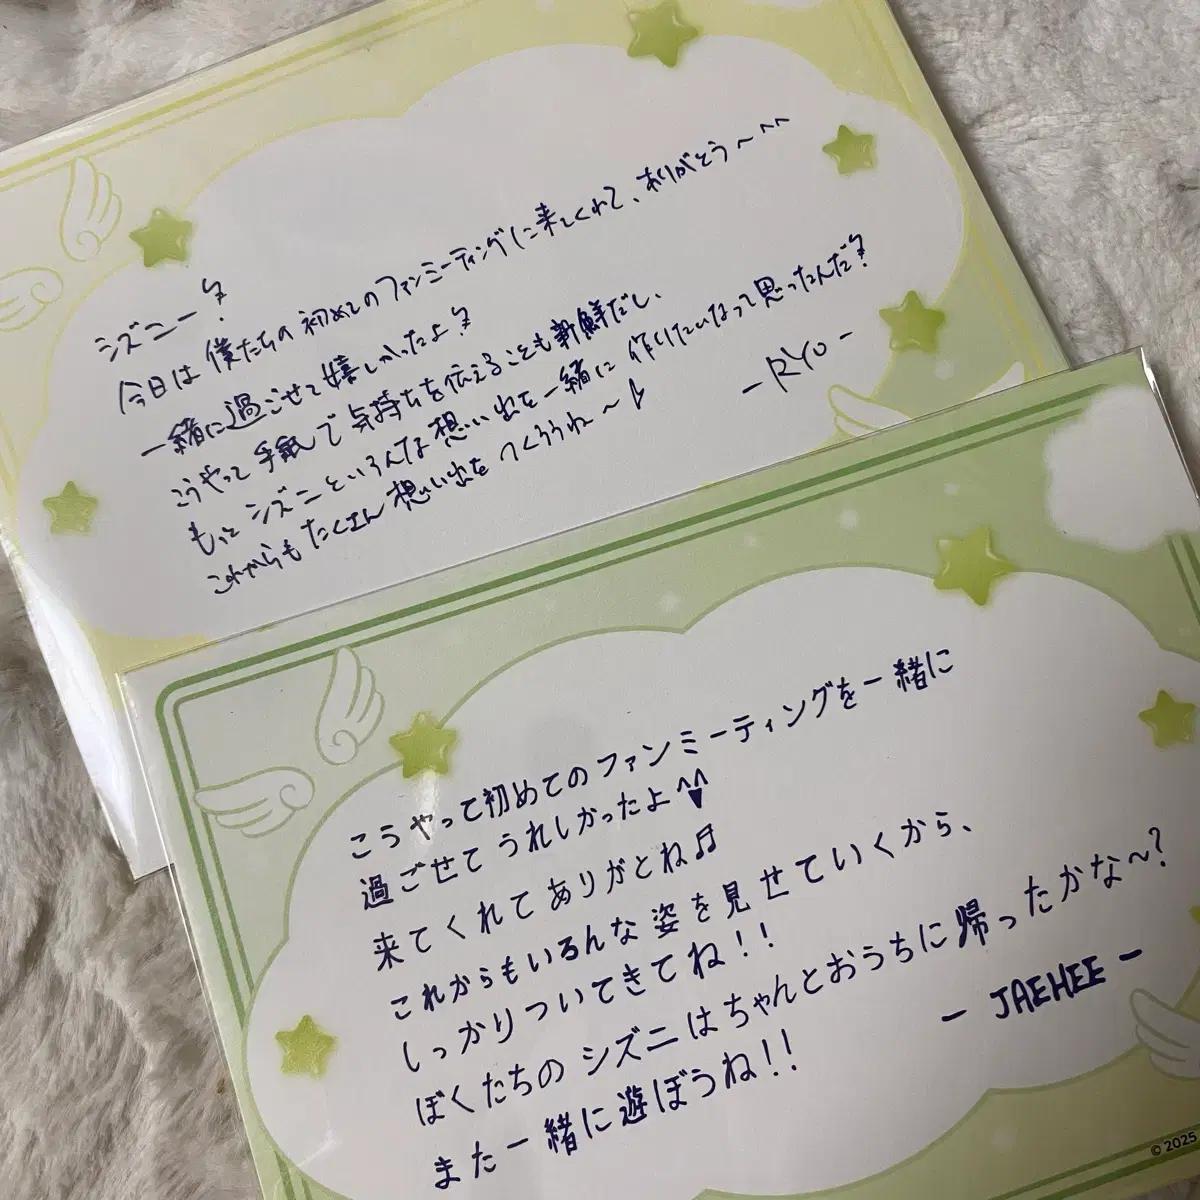 シズニー
今日は僕たちの初めてのファンミーティングに来てくれて、ありがとう〜^^
一緒に過ごせて嬉しかったよ
こうやって手紙で気持ちを伝えることも新鮮だし、
もっとシズニといろんな想い出を一緒に作りたいなって思ったんだ
これからもたくさん想い出をつくろうね〜♪
- RYO -
こうやって初めてのファンミーティングを一緒に
過ごせてうれしかったよ^^♥
来てくれてありがとね♬
これからもいろんな姿を見せていくから、
しっかりついてきてね!!
ぼくたちのシズニはちゃんとおうちに帰ったかな〜?
また一緒に遊ぼうね!!
- JAEHEE -
© 2025